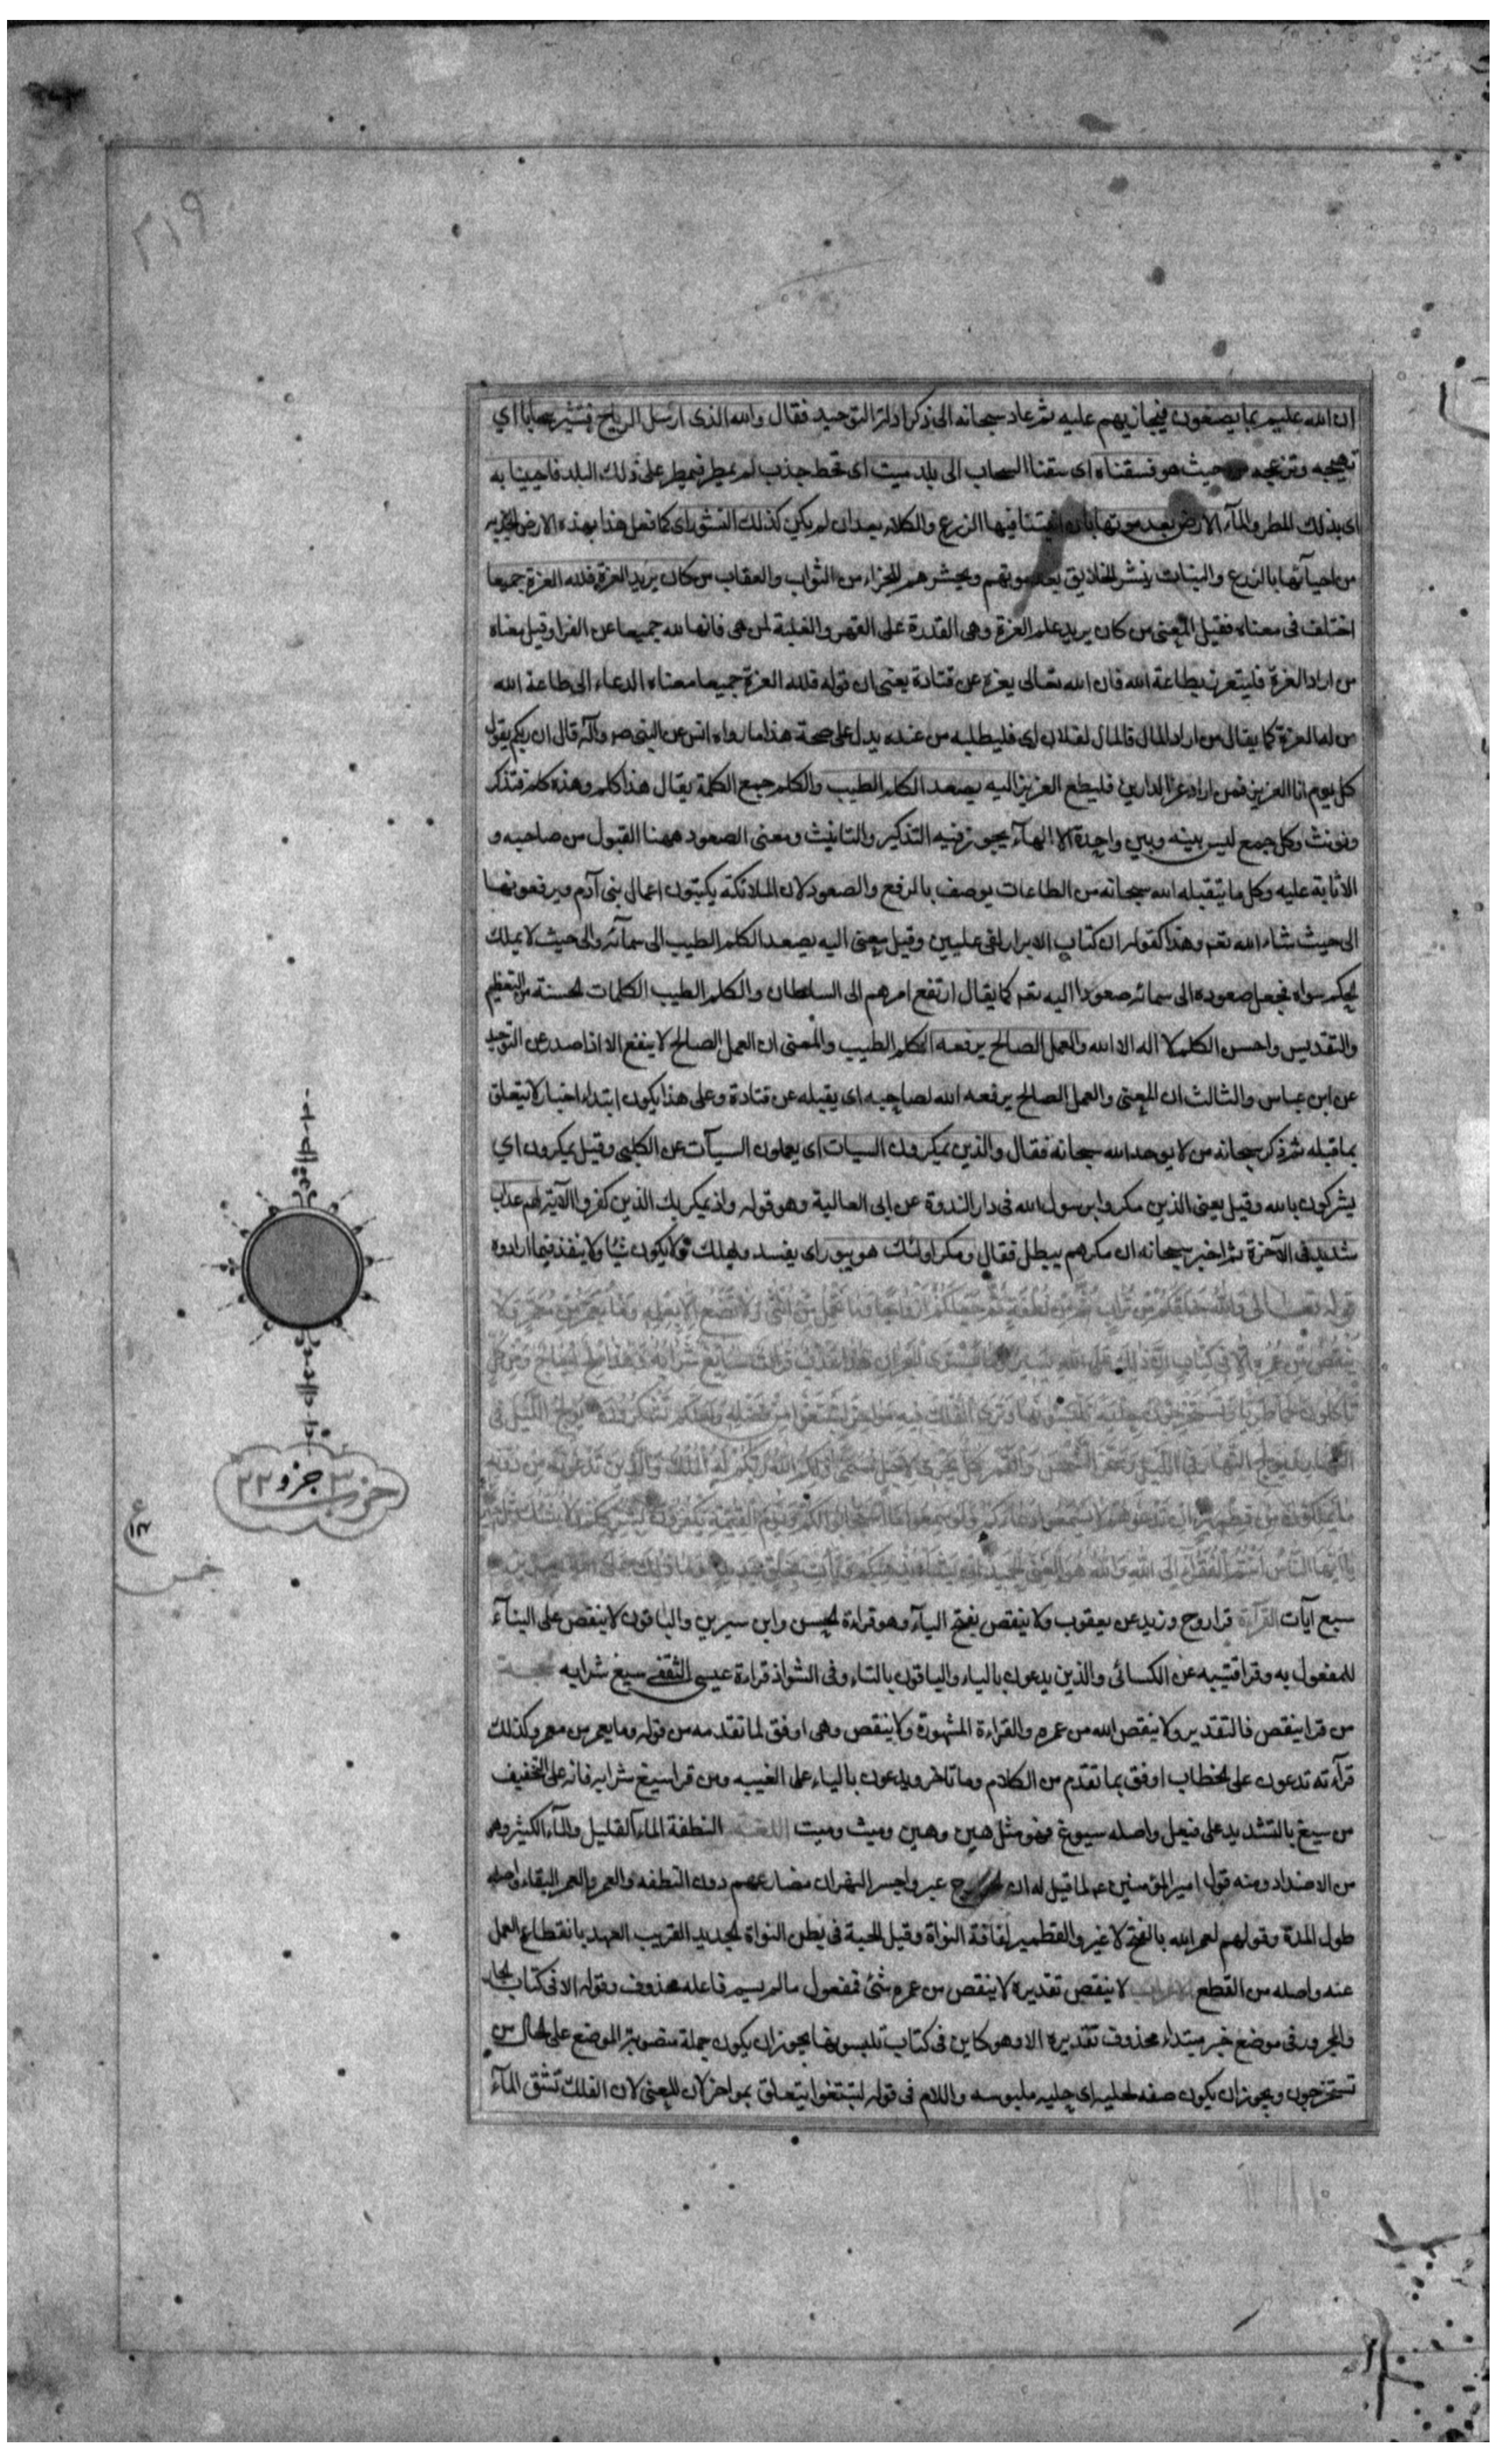 ٢١٩
ان الله عليم بما يصنعون فيجازيهم عليه ثم عاد سبحانه الى ذكر ادلة التوحيد فقال والله الذى ارسل الرياح فتثير سحابا اي
تهيجه وتزعجه حيث هو فسقناه اى سقنا السحاب الى بلد ميت اى قحط جذب لم يمطر فيمطر على ذلك البلد فاحيينا به
اى بذلك المطر والمآء الارض بعد موتها بان انبتنا فيها الزرع والكلاء بعد ان لم يكن كذلك النشور اى كما فعل هذا بهذه الارض الجدبة
من احيآئها بالزرع والنبات ينشر الخلايق بعد موتهم ويحشرهم للجزاء من الثواب والعقاب من كان يريد العزة فلله العزة جميعا
اختلف فى معناه فقيل المعنى من كان يريد علم العزة وهى القدرة على القهر والغلبة لمن هى فانها لله جميعا عن الفرا وقيل معناه
من اراد العزة فليتعزز بطاعة الله فان الله تعالى يعزه عن قتادة يعنى ان قوله فلله العزة جميعا معناه الدعاء الى طاعة الله
من له العزة كما يقال من اراد المال فالمال لفلان اى فليطلبه من عنده يدل على صحة هذا ما رواه انس عن النبى ص وآله قال ان ربكم يقول
كل يوم انا العزيز فمن اراد عز الدارين فليطع العزيز اليه يصعد الكلم الطيب والكلم جمع الكلمة يقال هذا كلم وهذه كلم فتذكر
وتونث وكل جمع ليس بينه وبين واحده الا الهآء يجوز فيه التذكير والتانيث ومعنى الصعود ههنا القبول من صاحبه و
الاثابة عليه وكل ما يتقبله الله سبحانه من الطاعات يوصف بالرفع والصعود لان الملائكة يكتبون اعمال بنى آدم ويرفعونها
الى حيث شاء الله تعم وهذا كقوله ان كتاب الابرار لفى عليين وقيل معنى اليه يصعد الكلم الطيب الى سمآئه والى حيث لا يملك
الحكم سواه فجعل صعوده الى سمائه صعودا اليه تعم كما يقال ارتفع امرهم الى السلطان والكلم الطيب الكلمات الحسنة من التعظيم
والتقديس واحسن الكلم لا اله الا الله والعمل الصالح يرفعه الكلم الطيب والمعنى ان العمل الصالح لا ينفع الا اذا صدر عن التوحيد
عن ابن عباس والثالث ان المعنى والعمل الصالح يرفعه الله لصاحبه اى يقبله عن قتادة وعلى هذا يكون ابتداء اخبار لا يتعلق
بما قبله ثم ذكر سبحانه من لا يوحد الله سبحانه فقال والذين يمكرون السيات اى يعملون السيآت عن الكلبى وقيل يمكرون اي
يشركون بالله وقيل يعنى الذين مكروا برسول الله فى دار الندوة عن ابى العالية وهو قوله واذ يمكر بك الذين كفروا الآية لهم عذاب
شديد فى الآخرة ثم اخبر سبحانه ان مكرهم يبطل فقال ومكر اولئك هو يبور اى يفسد ويهلك ولا يكون شيا ولا ينفذ فيما ارادوه
قوله تعالى والله خلقكم من تراب ثم من نطفة ثم جعلكم ازواجا وما تحمل من انثى ولا تضع الا بعلمه وما يعمر من معمر ولا
ينقص من عمره الا فى كتاب ان ذلك على الله يسير وما يستوى البحران هذا عذب فرات سايغ شرابه وهذا ملح اجاج ومن كل
تاكلون لحما طريا وتستخرجون حلية تلبسونها وترى الفلك فيه مواخر لتبتغوا من فضله ولعلكم تشكرون يولج الليل فى
النهار ويولج النهار فى الليل وسخر الشمس والقمر كل يجرى لاجل مسمى ذلكم الله ربكم له الملك والذين تدعون من دونه
ما يملكون من قطمير ان تدعوهم لا يسمعوا دعاءكم ولو سمعوا ما استجابوا لكم ويوم القيمة يكفرون بشرككم ولا ينبئك مثل خبير
يا ايها الناس انتم الفقراء الى الله والله هو الغنى الحميد ان يشا يذهبكم ويات بخلق جديد وما ذلك على الله بعزيز
سبع آيات القرآءة قرا روح وزيد عن يعقوب ولا ينقص بفتح اليآء وهو قراءة الحسن وابن سيرين والباقون لا ينقص على البنآء
للمفعول به وقرا قتيبه عن الكسائى والذين يدعون بالياء والباقون بالتاء وفى الشواذ قراءة عيسى الثقفى سيغ شرابه الحجة
من قرا ينقص فالتقدير ولا ينقص الله من عمره والقراءة المشهورة ولا ينقص وهى اوفق لما تقدمه من قوله وما يعمر من معمر وكذلك
قرآءته تدعون على الخطاب اوفق بما تقدم من الكلام وما تاخر ويدعون بالياء على الغيبه ومن قرا سيغ شرابه فانه على التخفيف
من سيغ بالتشديد على فيعل واصله سيوغ فهو مثل هين وهين وميت وميت اللغة النطفة المآء القليل والمآء الكثير وهو
من الاضداد ومنه قول امير المؤمنين ع لما قيل له ان الخوارج عبروا جسر النهروان مصارعهم دون النطفه والعمر والعمر البقاء واصله
طول المدة وقولهم لعمر الله بالفتح لا غير والقطمير لفافة النواة وقيل الحبة فى بطن النواة الجديد القريب العهد بانقطاع العمل
عنه واصله من القطع الاعراب لا ينقص تقديره لا ينقص من عمره شئ فمفعول ما لم يسم فاعله محذوف وقوله الا فى كتاب الجار
والمجرور فى موضع خبر مبتداء محذوف تقديره الا وهو كاين فى كتاب تلبسونها يجوز ان يكون جملة منصوبة الموضع على الحال من
تستخرجون ويجوز ان يكون صفه لحليه اى حليه ملبوسه واللام فى قوله لتبتغوا يتعلق بمواخر لان المعنى لان الفلك تشق المآء
حزب ٣ جزو ٢٢
خمس